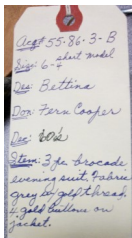 Acq# 55-86-3-B
Size: 6-8 short model
Des: Bettina
Don: Fern Cooper
Dec: 60's
Item: 3 pc brocade
evening suit. Fabric
grey by gold thread.
4 gold buttons on
jacket.